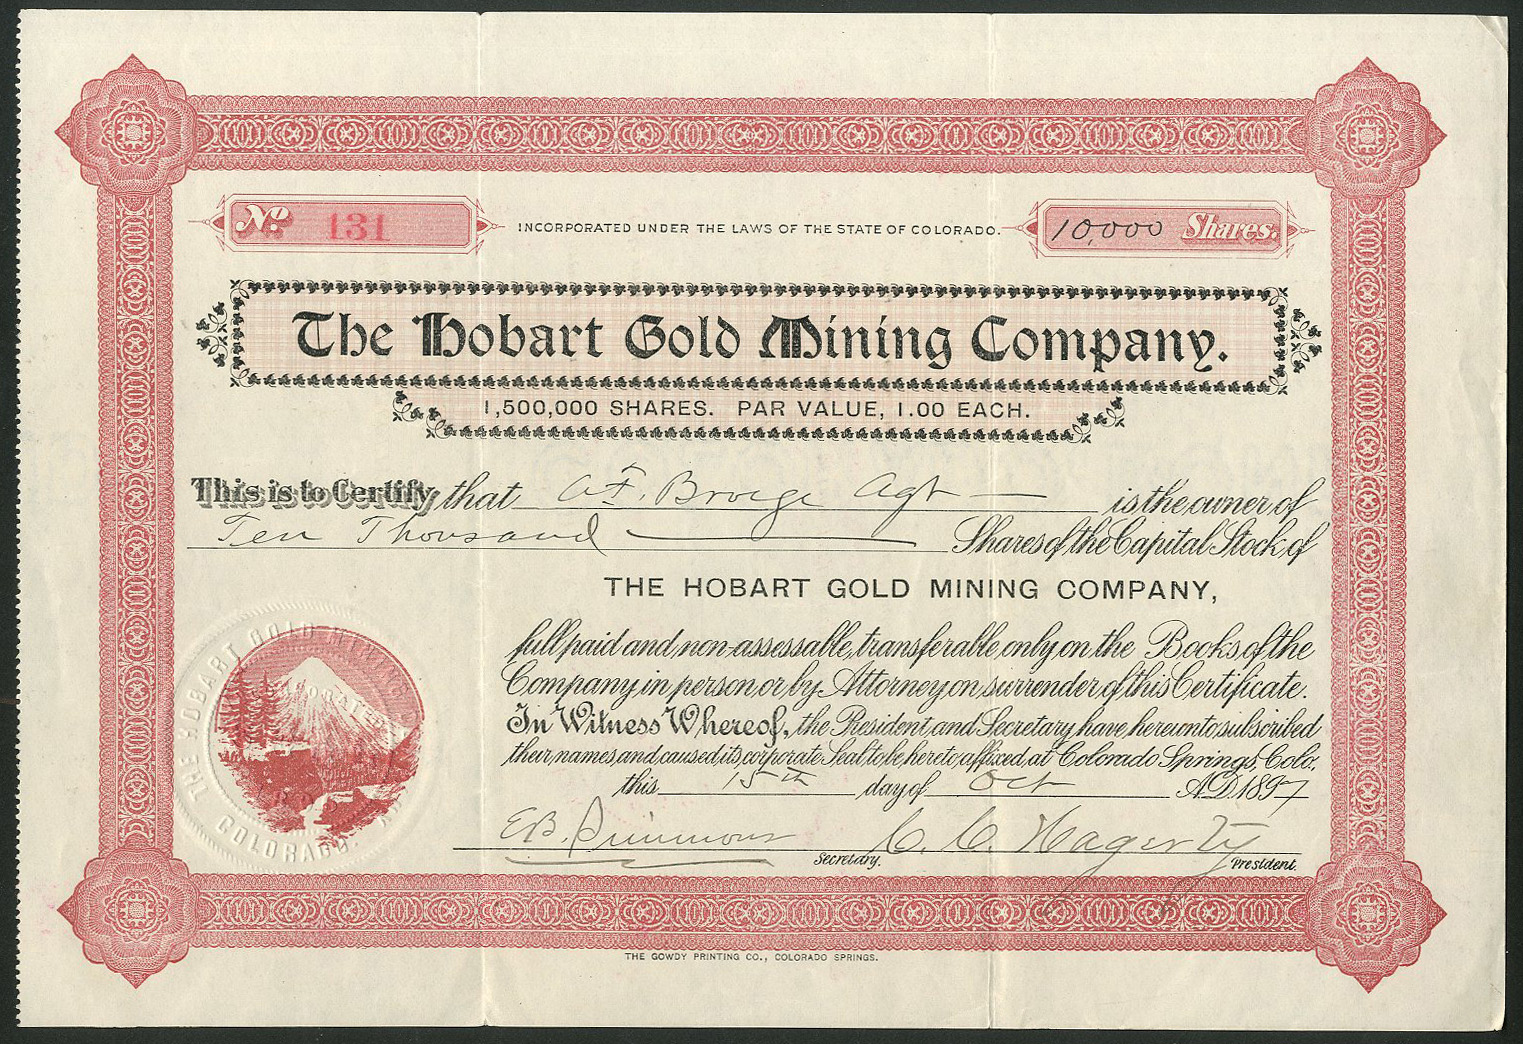 No. 131
INCORPORATED UNDER THE LAWS OF THE STATE OF COLORADO.
10,000 Shares.
The Hobart Gold Mining Company.
1,500,000 SHARES. PAR VALUE, 1.00 EACH.
This is to Certify that A. F. Broege Agt is the owner of
Ten Thousand Shares of the Capital Stock of
THE HOBART GOLD MINING COMPANY,
full paid and non-assessable, transferable, only on the Books of the
Company in person or by Attorney on surrender of this Certificate.
In Witness Whereof, the President and Secretary have hereunto subscribed
their names and caused its corporate Seal to be hereto affixed, at Colorado Springs, Colo;
this 15th day of Oct A.D. 1897
THE HOBART GOLD MINING
COLORADO.
E.B. Simmons Secretary. C. C. Hagerty President.
THE GOWDY PRINTING CO., COLORADO SPRINGS.